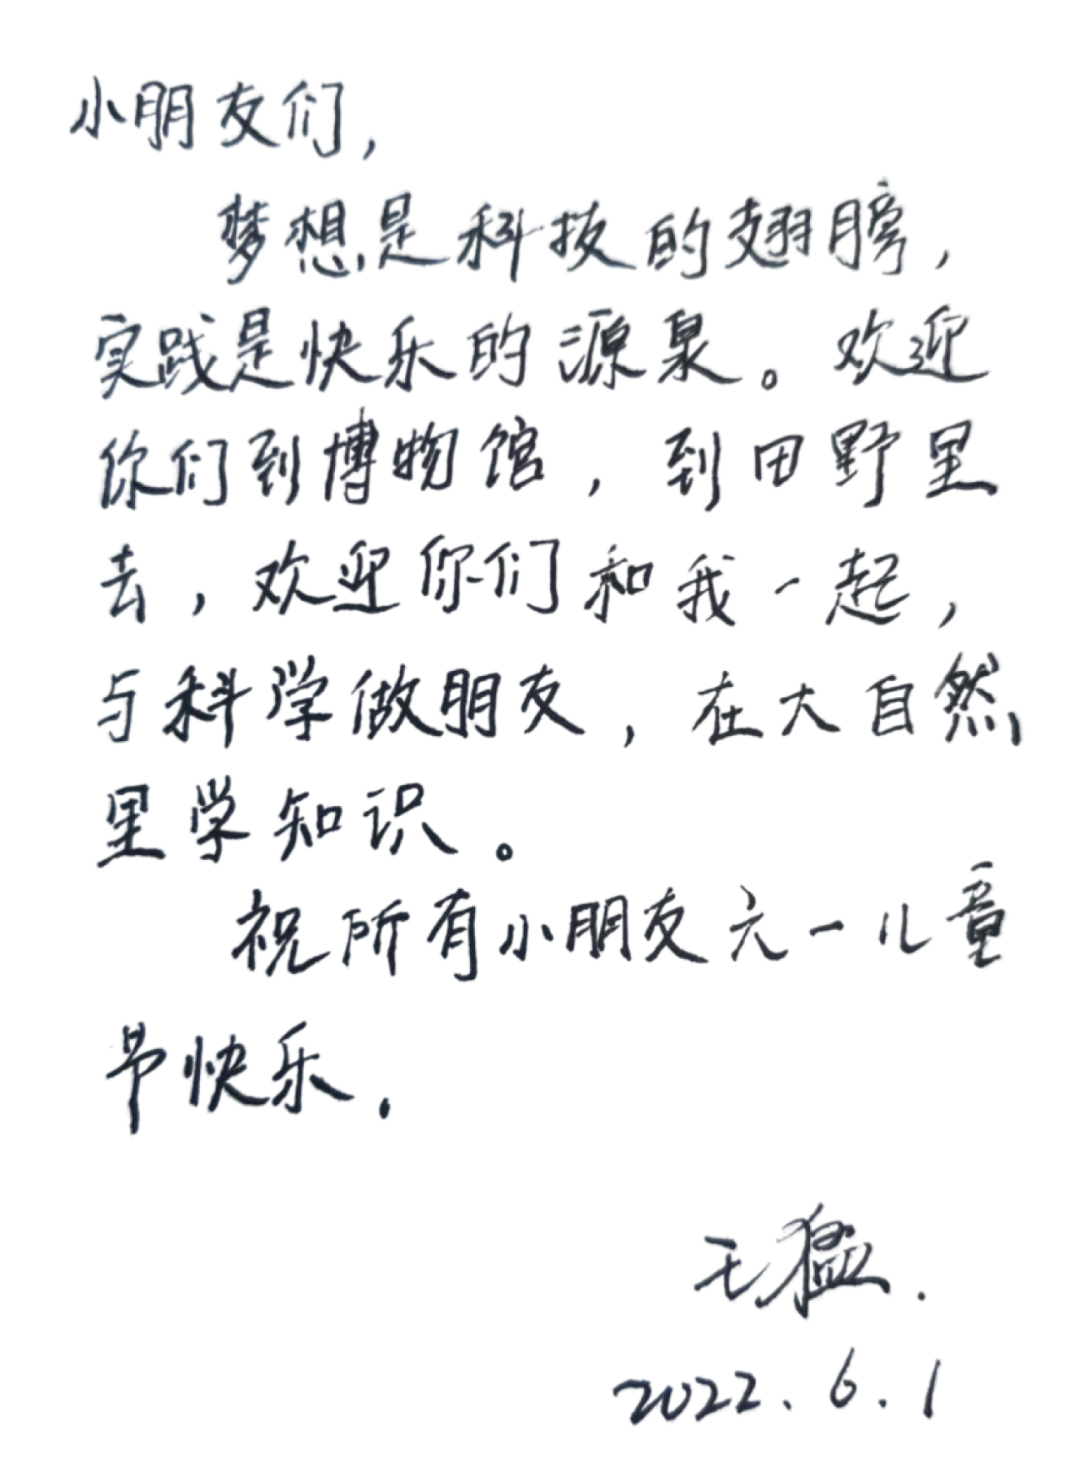 小朋友们，
梦想是科技的翅膀，
实践是快乐的源泉。欢迎
你们到博物馆，到田野里
去，欢迎你们和我一起，
与科学做朋友，在大自然
里学知识。
祝所有小朋友六一儿童
节快乐.
王猛.
2022.6.1